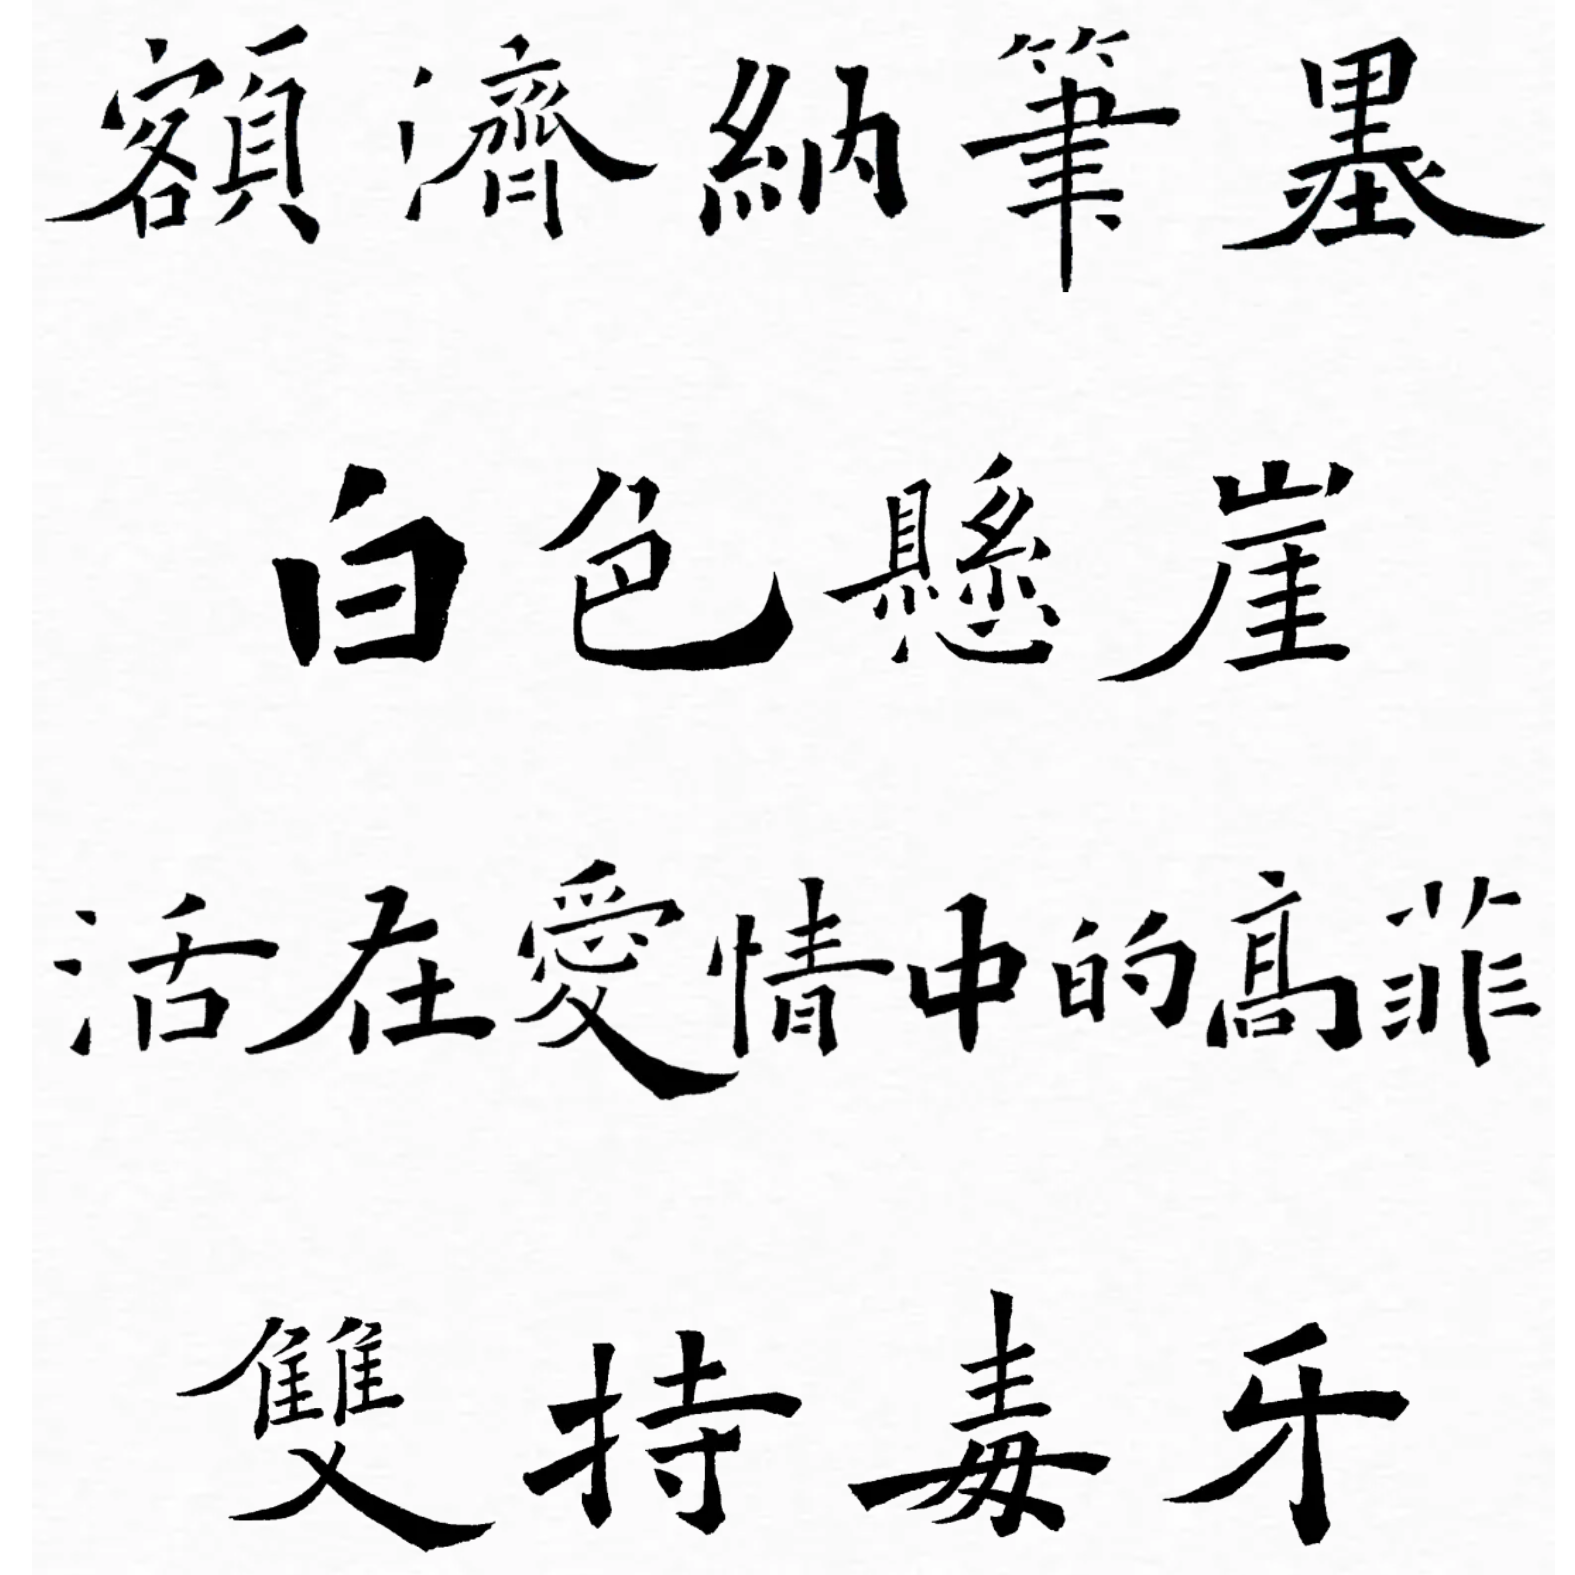 額濟納筆墨
白色懸崖
活在愛情中的高菲
雙持毒牙